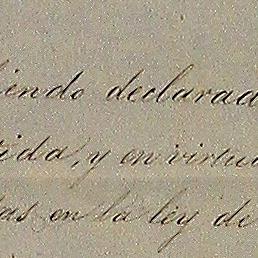 iendo declarad
rida, y en virtud
las en la ley de